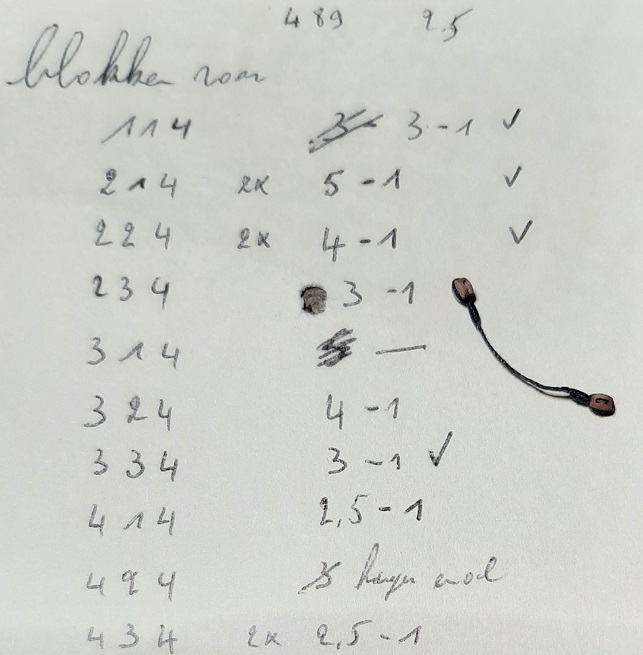 489 2,5
blokken
114 3-1 ✓
214 2x 5-1 ✓
224 2x 4-1 ✓
234 3-1
314 —
324 4-1
334 3-1 ✓
414 2,5-1
424
434 2x 2,5-1